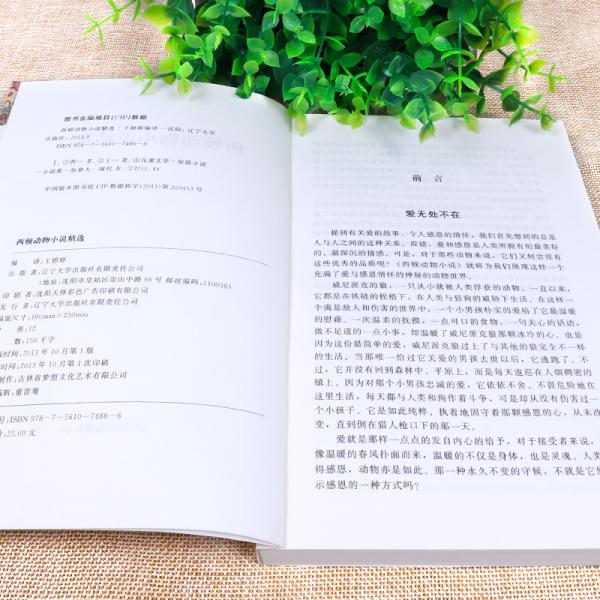 图书在版编目(CIP)数据
西顿动物小说精选 / 王婷婷编译 — 沈阳:辽宁大学
出版社,2013.9
ISBN 978-7-5610-7488-6
Ⅰ.①西… Ⅱ.①王… Ⅲ.①儿童文学-短篇小说
-小说集-加拿大-现代 Ⅳ.①I711.84
中国版本图书馆CIP数据核字(2013)第229453号
西顿动物小说精选
编 译:王婷婷
出 版 者:辽宁大学出版社有限责任公司
(地址:沈阳市皇姑区崇山中路66号 邮政编码:110036)
印 刷 者:沈阳天择彩色广告印刷有限公司
发 行 者:辽宁大学出版社有限责任公司
幅面尺寸:160mm×230mm
印 张:12
字 数:150千字
版时间:2013年10月第1版
刷时间:2013年10月第1次印刷
制作:吉林省梦想文化艺术有限公司
编辑:董晋骞
号:ISBN 978-7-5610-7488-6
价:25.00元
前 言
爱无处不在
提到有关爱的故事、令人感恩的情怀,我们首先想到的总是
人与人之间的这种关系。没错,爱和感恩是人类所拥有的最美好
的、最深沉的情感。可是,对于那些动物来说,它们又何尝没有
这些优秀的品质呢?《西顿动物小说》就将为我们展现这样一个
充满了爱与感恩情怀的神秘的动物世界。
威尼派克的狼,一只从小就被人类俘获的动物。一直以来,
它都是在铁链的桎梏下,在人类与猎狗的威胁下生活。在这样一
个满是敌人和伤害的世界中,一个小男孩朴实的爱给了它最温暖
的慰藉。一次温柔的抚摸,一点可口的食物,一句关心的话语,
微不足道的一点小事,却温暖了威尼派克狼那颗冰冷的心。也是
因为这份最简单的爱,威尼派克狼过上了与其他的狼完全不一样
的生活。当那唯一给过它关爱的男孩去世以后,它逃跑了。不
过,它并没有回到森林中、平原上,而是每天逃返在人烟稠密的
镇上。因为对那个小男孩忠诚的爱,它依依不舍、不畏危险地在
这里生活,每天都与人类和狗作着斗争,可是却从没有伤害过一
个小孩子。它是如此纯粹、执着地固守着那颗感恩的心,从未改
变,直到倒在猎人枪口下的那一天。
爱就是那样一点点的发自内心的给予,对于接受着来说,
像温暖的春风扑面而来,温暖的不仅是身体,也是灵魂。人类
得感恩,动物亦是如此。那一种永久不变的守候,不就是它
示感恩的一种方式吗?